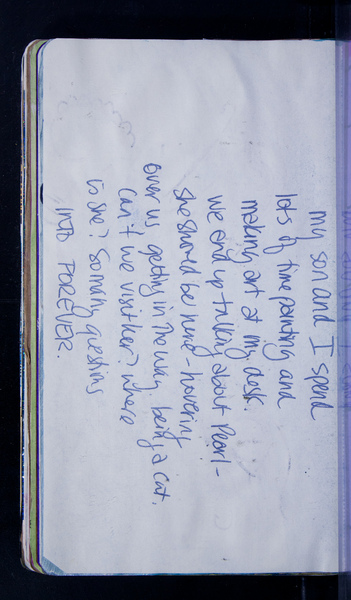 my son and I spend
lots of time painting and
making art at my desk.
we end up talking about Pearl -
she should be here - hovering
over us getting in the way being a cat.
can't we visit her? where
is she? So many questions
INTO FOREVER.